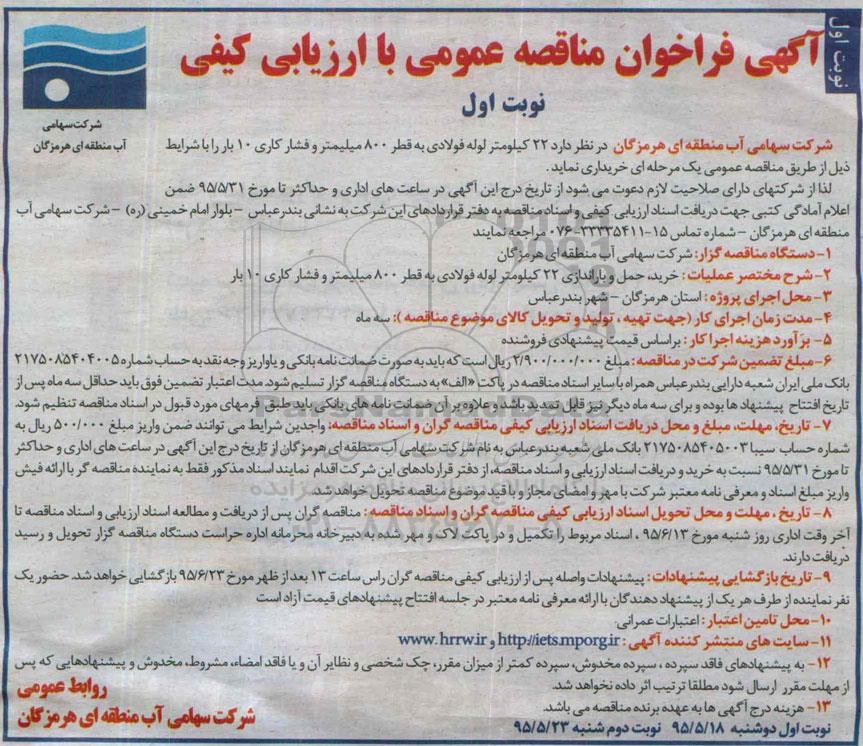 نوبت اول
آگهی فراخوان مناقصه عمومی با ارزیابی کیفی
نوبت اول
شرکت سهامی
آب منطقه ای هرمزگان
شرکت سهامی آب منطقه ای هرمزگان در نظر دارد ۲۲ کیلومتر لوله فولادی به قطر ۸۰۰ میلیمتر و فشار کاری ۱۰ بار را با شرایط
ذیل از طریق مناقصه عمومی یک مرحله ای خریداری نماید.
لذا از شرکتهای دارای صلاحیت لازم دعوت می شود از تاریخ درج این آگهی در ساعت های اداری و حداکثر تا مورخ ۹۵/۵/۳۱ ضمن
اعلام آمادگی کتبی جهت دریافت اسناد ارزیابی کیفی و اسناد مناقصه به دفتر قراردادهای این شرکت به نشانی بندرعباس –بلوار امام خمینی (ره) –شرکت سهامی آب
منطقه ای هرمزگان –شماره تماس ۱۵-۳۳۳۳۵۴۱۱-۰۷۶ مراجعه نمایند
۱-دستگاه مناقصه گزار: شرکت سهامی آب منطقه ای هرمزگان
۲-شرح مختصر عملیات: خرید، حمل و باراندازی ۲۲ کیلومتر لوله فولادی به قطر ۸۰۰ میلیمتر و فشار کاری ۱۰ بار
۳-محل اجرای پروژه: استان هرمزگان –شهر بندرعباس
۴-مدت زمان اجرای کار (جهت تهیه ، تولید و تحویل کالای موضوع مناقصه ): سه ماه
۵- برآورد هزینه اجرا کار: براساس قیمت پیشنهادی فروشنده
۶-مبلغ تضمین شرکت در مناقصه: مبلغ ۲/۹۰۰/۰۰۰/۰۰۰ ریال است که باید به صورت ضمانت نامه بانکی و یا واریز وجه نقد به حساب شماره ۲۱۷۵۰۸۵۴۰۴۰۰۵
بانک ملی ایران شعبه دارایی بندرعباس همراه با سایر اسناد مناقصه در پاکت «الف» به دستگاه مناقصه گزار تسلیم شود. مدت اعتبار تضمین فوق باید حداقل سه ماه پس از
تاریخ افتتاح پیشنهاد ها بوده و برای سه ماه دیگر نیز قابل تمدید باشد و علاوه بر آن ضمانت نامه های بانکی باید طبق فرمهای مورد قبول در اسناد مناقصه تنظیم شود.
۷- تاریخ، مهلت، مبلغ و محل دریافت اسناد ارزیابی کیفی مناقصه گران و اسناد مناقصه: واجدین شرایط می توانند ضمن واریز مبلغ ۵۰۰/۰۰۰ ریال به
شماره حساب سیبا ۲۱۷۵۰۸۵۴۰۵۰۰۳ بانک ملی شعبه بندرعباس به نام شرکت سهامی آب منطقه ای هرمزگان از تاریخ درج این آگهی در ساعت های اداری و حداکثر
تا مورخ ۹۵/۵/۳۱ نسبت به خرید و دریافت اسناد ارزیابی و اسناد مناقصه، از دفتر قراردادهای این شرکت اقدام نمایند اسناد مذکور فقط به نماینده مناقصه گر با ارائه فیش
واریز مبلغ اسناد و معرفی نامه معتبر شرکت با مهر و امضای مجاز و با قید موضوع مناقصه تحویل خواهد شد.
۸- تاریخ ، مهلت و محل تحویل اسناد ارزیابی کیفی مناقصه گران و اسناد مناقصه : مناقصه گران پس از دریافت و مطالعه اسناد ارزیابی و اسناد مناقصه تا
آخر وقت اداری روز شنبه مورخ ۹۵/۶/۱۳ ، اسناد مربوط را تکمیل و در پاکت لاک و مهر شده به دبیرخانه محرمانه اداره حراست دستگاه مناقصه گزار تحویل و رسید
دریافت دارند.
۹- تاریخ بازگشایی پیشنهادات: پیشنهادات واصله پس از ارزیابی کیفی مناقصه گران راس ساعت ۱۳ بعد از ظهر مورخ ۹۵/۶/۲۳ بازگشایی خواهد شد. حضور یک
نفر نماینده از طرف هر یک از پیشنهاد دهندگان با ارائه معرفی نامه معتبر در جلسه افتتاح پیشنهادهای قیمت آزاد است
۱۰- محل تامین اعتبار: اعتبارات عمرانی
۱۱- سایت های منتشر کننده آگهی: http://iets.mporg.ir و www. hrrw.ir
۱۲- به پیشنهادهای فاقد سپرده ، سپرده مخدوش، سپرده کمتر از میزان مقرر، چک شخصی و نظایر آن و یا فاقد امضاء، مشروط، مخدوش و پیشنهادهایی که پس
از مهلت مقرر ارسال شود مطلقا ترتیب اثر داده نخواهد شد.
۱۳- هزینه درج آگهی ها به عهده برنده مناقصه می باشد.
نوبت اول دوشنبه ۹۵/۵/۱۸ نوبت دوم شنبه ۹۵/۵/۲۳
روابط عمومی
شرکت سهامی آب منطقه ای هرمزگان
ParsNamadData